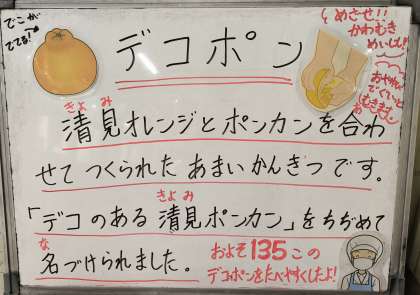 でこが
でてる!
デコポン
めざせ!!
かわむき
めいじん!
おやゆび
でぐいっと
むきます
きよみ
清見オレンジとポンカンを合わ
せてつくられたあまいかんきつです。
きよみ
「デコのある清見ポンカン」をちぢめて
な
名づけられました。
およそ135この
デコポンをたべやすくしたよ!